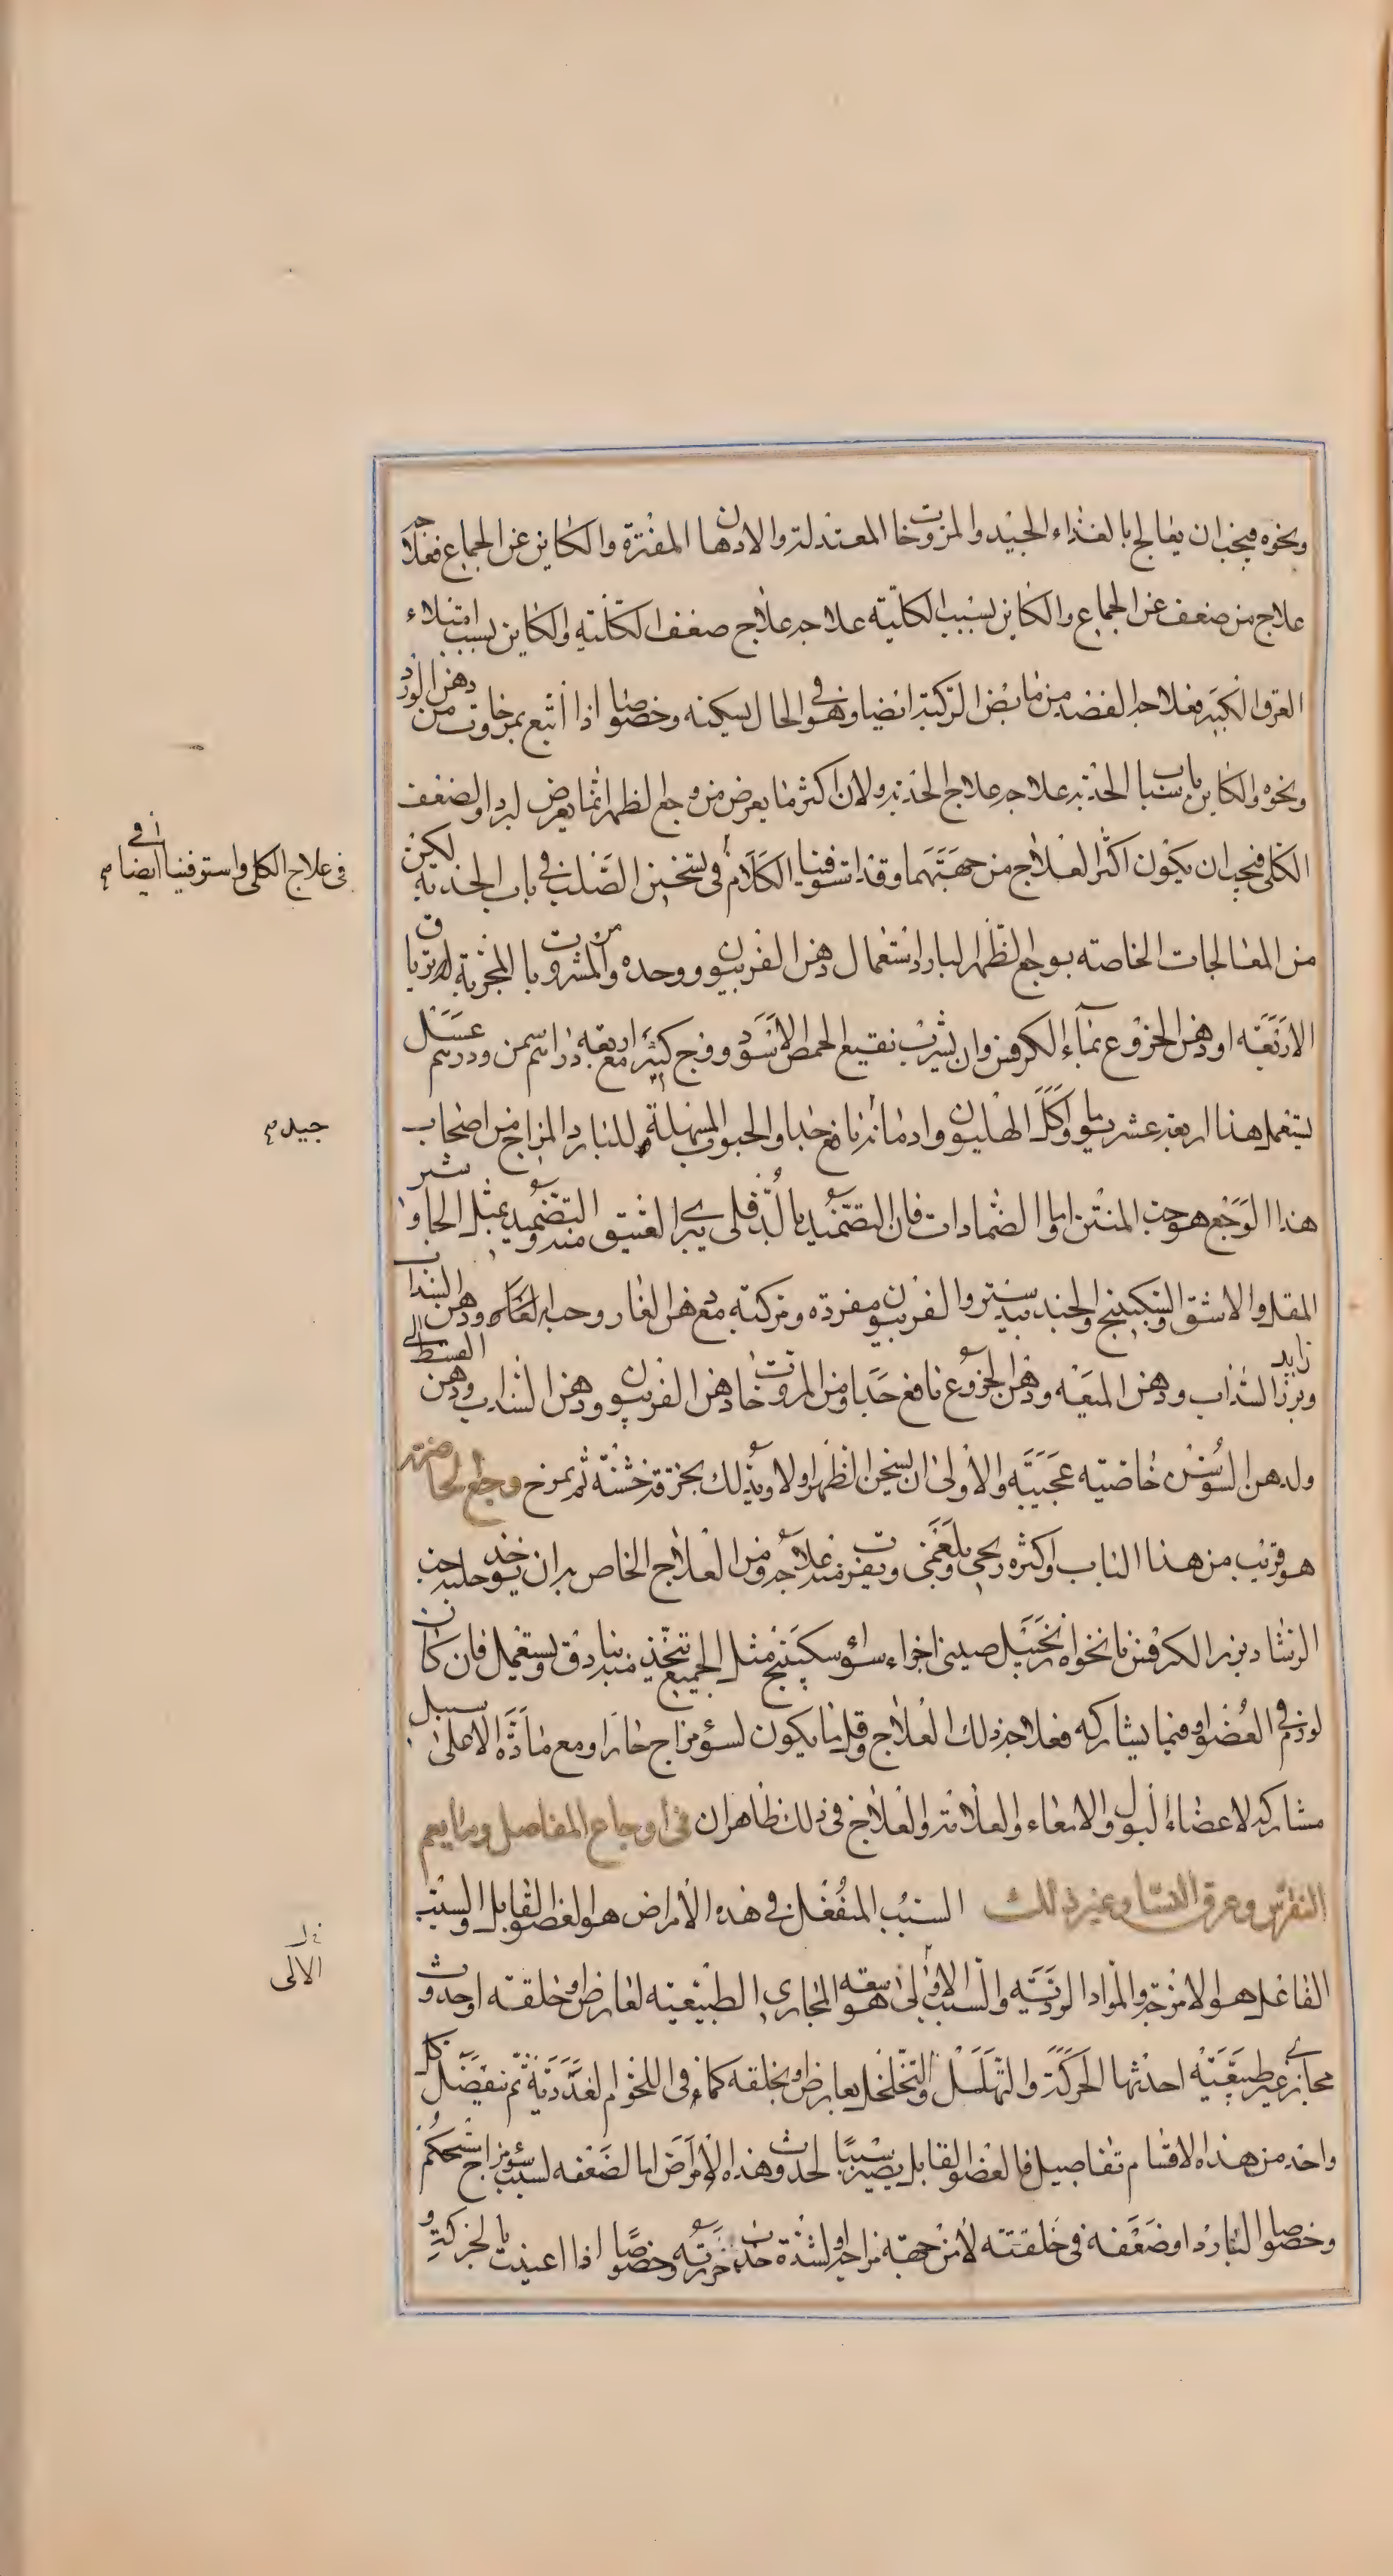 ونحوه فيجب ان يعالج بالغذاء الجيد والمروخات المعتدلة والادهان المفترة والكاين عن الجماع فعلاجه
علاج من ضعف عن الجماع والكاين بسبب الكلية علاجه علاج ضعف الكلية والكاين بسبب امتلاء
العرق الكبير فعلاجه الفصد من مابض الركبة ايضا وهو في الحال يسكنه وخصوصا اذا اتبع بمروخات من دهن الورد
ونحوه والكاين باسباب الحدبة علاجه علاج الحدبة ولان اكثر ما يعرض من وجع الظهر انما يعرض لبرد او لضعف
الكلى فيجب ان يكون اكثر العلاج من جهتهما وقد استوفينا الكلام في تسخين الصلب في باب الحدبة لكن
في علاج الكلى واستوفينا ايضا في
من المعالجات الخاصة بوجع الظهر البارد استعمال دهن الفربيون وحده ومن المشروبات المجربة له ترياق
الاربعة او دهن الخروع بماء الكرفس وان يشرب نقيع الحمص الاسود وفج كثير مع اربعة دراهم سمن ودرهم عسل
يستعمل هذا اربعة عشر يوما واكل الهليون وادمانه نافع جدا والحبوب المسهلة للبارد المزاج من اصحاب
جيد
هذا الوجع هو حب المنتن واما الضمادات فان التضميد بالدفلى يبرا العتيق منه والتضميد بمثل الجاوشير
المقل والاشق والسكبينج والجندبيدستر والفربيون مفردة ومركبة مع دهن الغار وحب الغار ودهن السذاب
وبزر السذاب ودهن الميعة ودهن الخروع نافع جدا ومن المروخات دهن الفربيون ودهن السذاب ودهن القسط
ولدهن السوسن خاصية عجيبة والاولى ان يسخن الظهر اولا ويدلك بخرقة خشنة ثم يمرخ وجع الخاصرة
هو قريب من هذا الباب واكثره ريحي وبلغمي ويقرب منه علاجه ومن العلاج الخاص به ان يوخذ حلبة حب
الرشاد بزر الكرفس نانخواه زنجبيل صيني اجزاء سواء سكبينج مثل الجميع يتخذ منه بنادق ويستعمل فان كان
لورم في العضو او فيما يشاركه فعلاجه ذلك العلاج وقل ما يكون لسوء مزاج حار او مع مادة الا على سبيل
مشاركة لاعضاء البول والامعاء والعلامة والعلاج في ذلك ظاهران في اوجاع المفاصل وما يعم
النقرس وعرق النسا وغير ذلك السبب المنفعل في هذه الامراض هو العضو القابل والسبب
الفاعل هو الامزجة والمواد الردية والسبب الالى هو سعة المجارى الطبيعية لعارض او خلقة او حدوث
الالى
مجارى غير طبيعية احدثها الحركة والتهلهل والتخلخل لعارض او بخلقه كما في اللحوم الغددية ثم ينفصل كل
واحد من هذه الاقسام تفاصيل فالعضو القابل يصير سببا لحدوث هذه الامراض اما لضعفه لسبب سوء مزاج مستحكم
وخصوصا البارد او ضعفه في خلقته لا من جهة مزاجه او لشدة جذب حرارته وخصوصا اذا اعينت بالحركة و